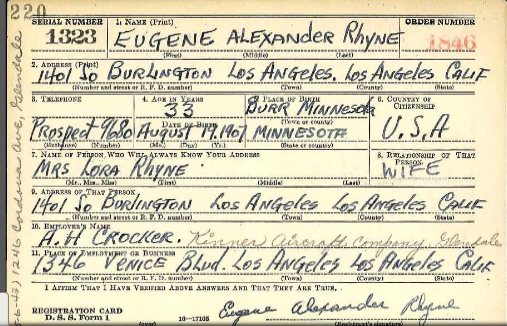 220
SERIAL NUMBER 1. NAME (Print) ORDER NUMBER
1323 EUGENE ALEXANDER RHYNE 1846
(First) (Middle) (Last)
2. ADDRESS (Print)
1401 SO BURLINGTON LOS ANGELES, LOS ANGELES CALIF
(Number and street or R. F. D. number) (Town) (County) (State)
3. TELEPHONE 4. AGE IN YEARS 5. PLACE OF BIRTH 6. COUNTRY OF CITIZENSHIP
33 BURR MINNESOTA
DATE OF BIRTH (Town or county)
PROSPECT 9680 AUGUST 19.1907 MINNESOTA U.S.A
(Exchange) (Number) (Mo.) (Day) (Yr.) (State or country)
7. NAME OF PERSON WHO WILL ALWAYS KNOW YOUR ADDRESS 8. RELATIONSHIP OF THAT PERSON
MRS LORA RHYNE WIFE
(Mr., Mrs., Miss) (First) (Middle) (Last)
9. ADDRESS OF THAT PERSON
1401 SO BURLINGTON LOS ANGELES LOS ANGELES CALIF
(Number and street or R. F. D. number) (Town) (County) (State)
10. EMPLOYER'S NAME
A. H CROCKER. Kinner Aircraft Company, Glendale
11. PLACE OF EMPLOYMENT OR BUSINESS
1346 VENICE BLVD. LOS ANGELES LOS ANGELES CALIF
(Number and street or R. F. D. number) (Town) (County) (State)
I AFFIRM THAT I HAVE VERIFIED ABOVE ANSWERS AND THAT THEY ARE TRUE.
REGISTRATION CARD
D. S. S. Form 1 16—17105 Eugene Alexander Rhyne
(over) (Registrant's signature)